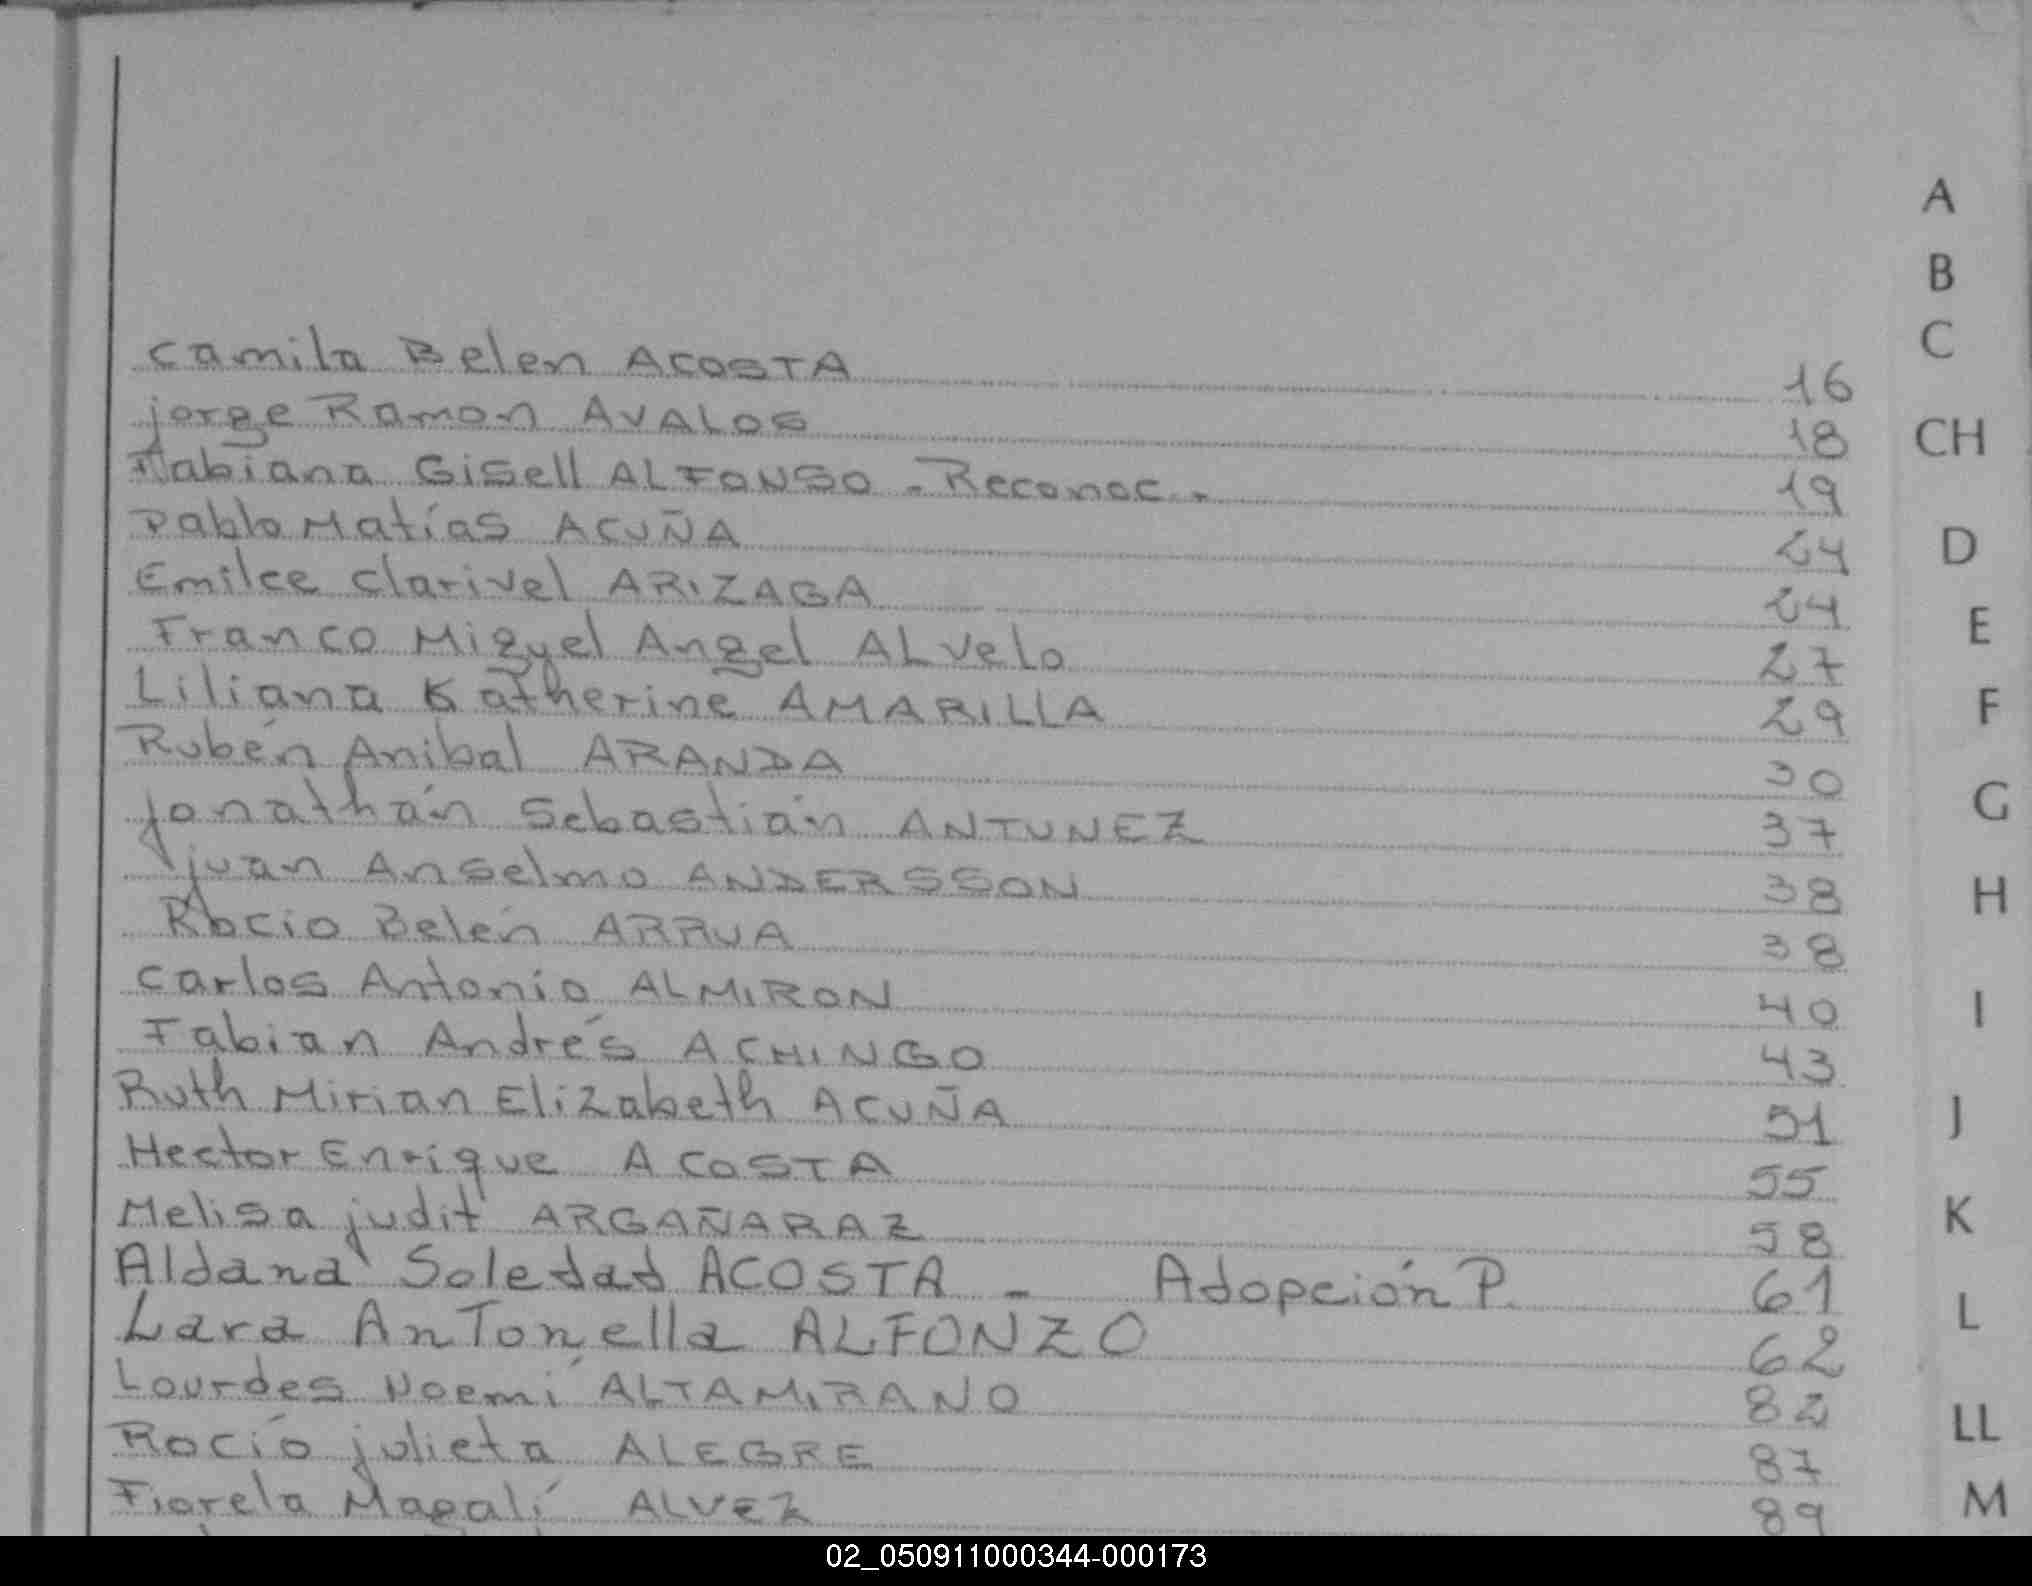 Camila Belen ACOSTA 16
jorge Ramon AVALOS 18
Fabiana Gisell ALFONSO - Reconoc. 19
Pablo Matías ACUÑA 24
Emilce Clarivel ARIZAGA 24
Franco Miguel Angel ALVelo 27
Liliana Katherine AMARILLA 29
Rubén Anibal ARANDA 30
Jonathán Sebastián ANTUNEZ 37
juan Anselmo ANDERSSON 38
Rocio Belén ARRUA 38
Carlos Antonio ALMIRON 40
Fabian Andrés ACHINGO 43
Ruth Mirian Elizabeth ACUÑA 51
Hector Enrique ACOSTA 55
Melisa judit ARGAÑARAZ 58
Aldana Soledad ACOSTA - Adopción P. 61
Lara Antonella ALFONZO 62
Lourdes Noemí ALTAMIRANO 82
Rocío julieta ALEGRE 87
Fiorela Magalí ALVEZ 89
A
B
C
CH
D
E
F
G
H
I
J
K
L
LL
M
02_050911000344-000173